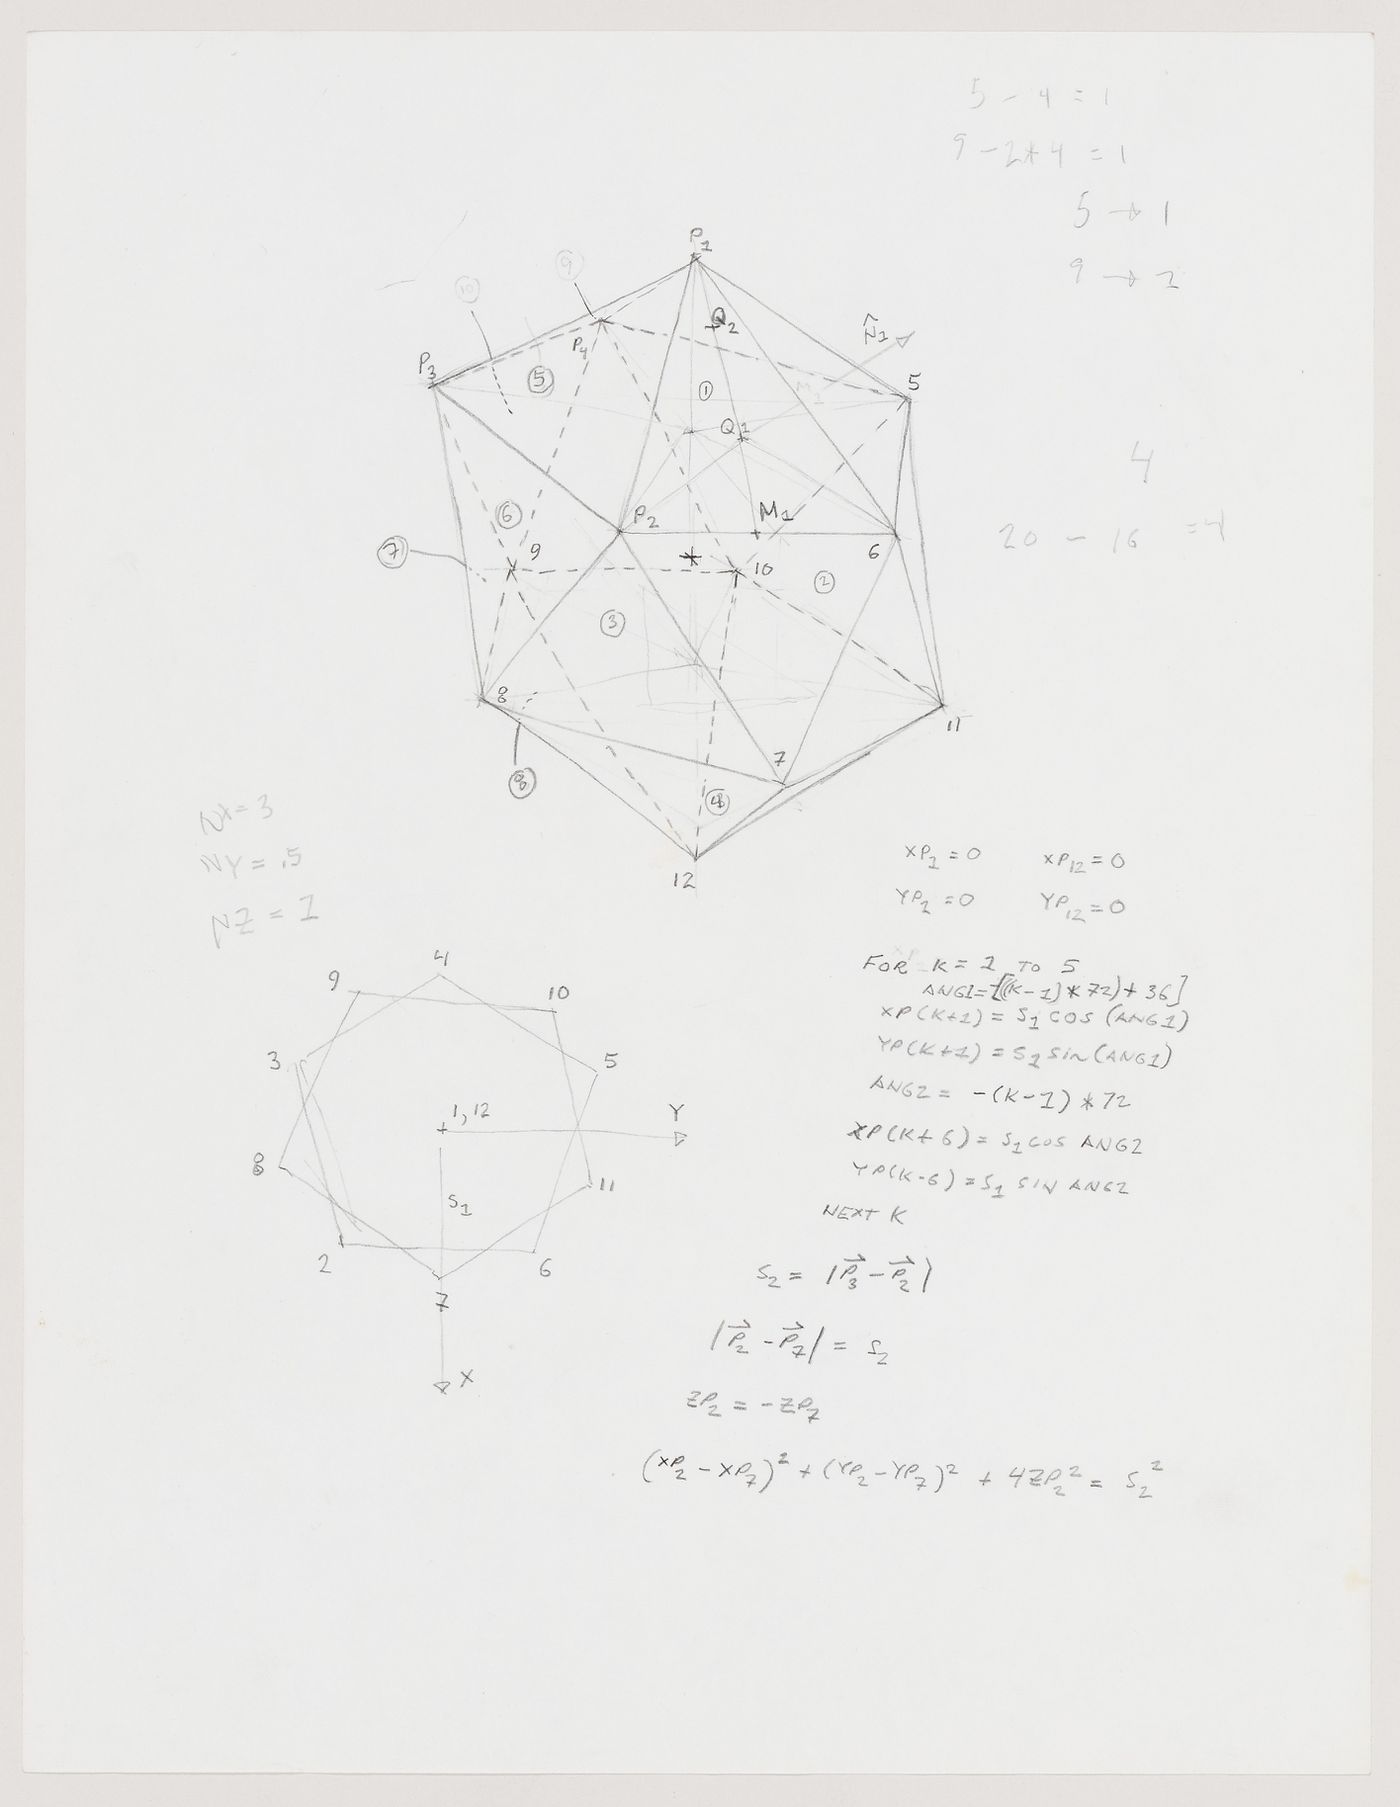 5 - 4 = 1
9 - 2*4 = 1
5 → 1
9 → 2
P1
9
10
Q2
N̂1
P4
P3
5
1
5
Q1
4
6
P2
M1
20 - 16 = 4
7
9
10
6
2
3
8
11
7
8
4
12
NX = 3
NY = .5
NZ = 1
XP1 = 0 XP12 = 0
YP1 = 0 YP12 = 0
4
9
10
3
5
1, 12
Y
8
S1
11
2
6
7
X
FOR K = 1 TO 5
ANG1 = [((K-1)*72)+36]
XP(K+1) = S1 COS (ANG1)
YP(K+1) = S1 SIN (ANG1)
ANG2 = -(K-1)*72
XP(K+6) = S1 COS ANG2
YP(K-6) = S1 SIN ANG2
NEXT K
S2 = |P⃗3 - P⃗2|
|P⃗2 - P⃗7| = S2
ZP2 = -ZP7
(XP2 - XP7)² + (YP2 - YP7)² + 4ZP2² = S2²